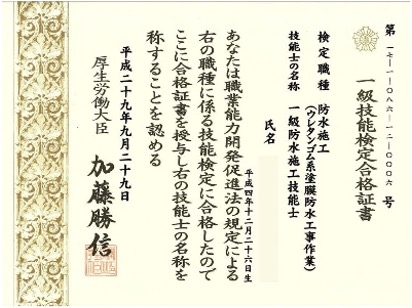 第一七-一-〇八六-一二-〇〇〇六号
一級技能検定合格証書
検定職種　防水施工
(ウレタンゴム系塗膜防水工事作業)
技能士の名称　一級防水施工技能士
氏名
平成四年十二月二十六日生
あなたは職業能力開発促進法の規定による
右の職種に係る技能検定に合格したので
ここに合格証書を授与し右の技能士の名称を
称することを認める
平成二十九年九月二十九日
厚生労働大臣　加藤勝信